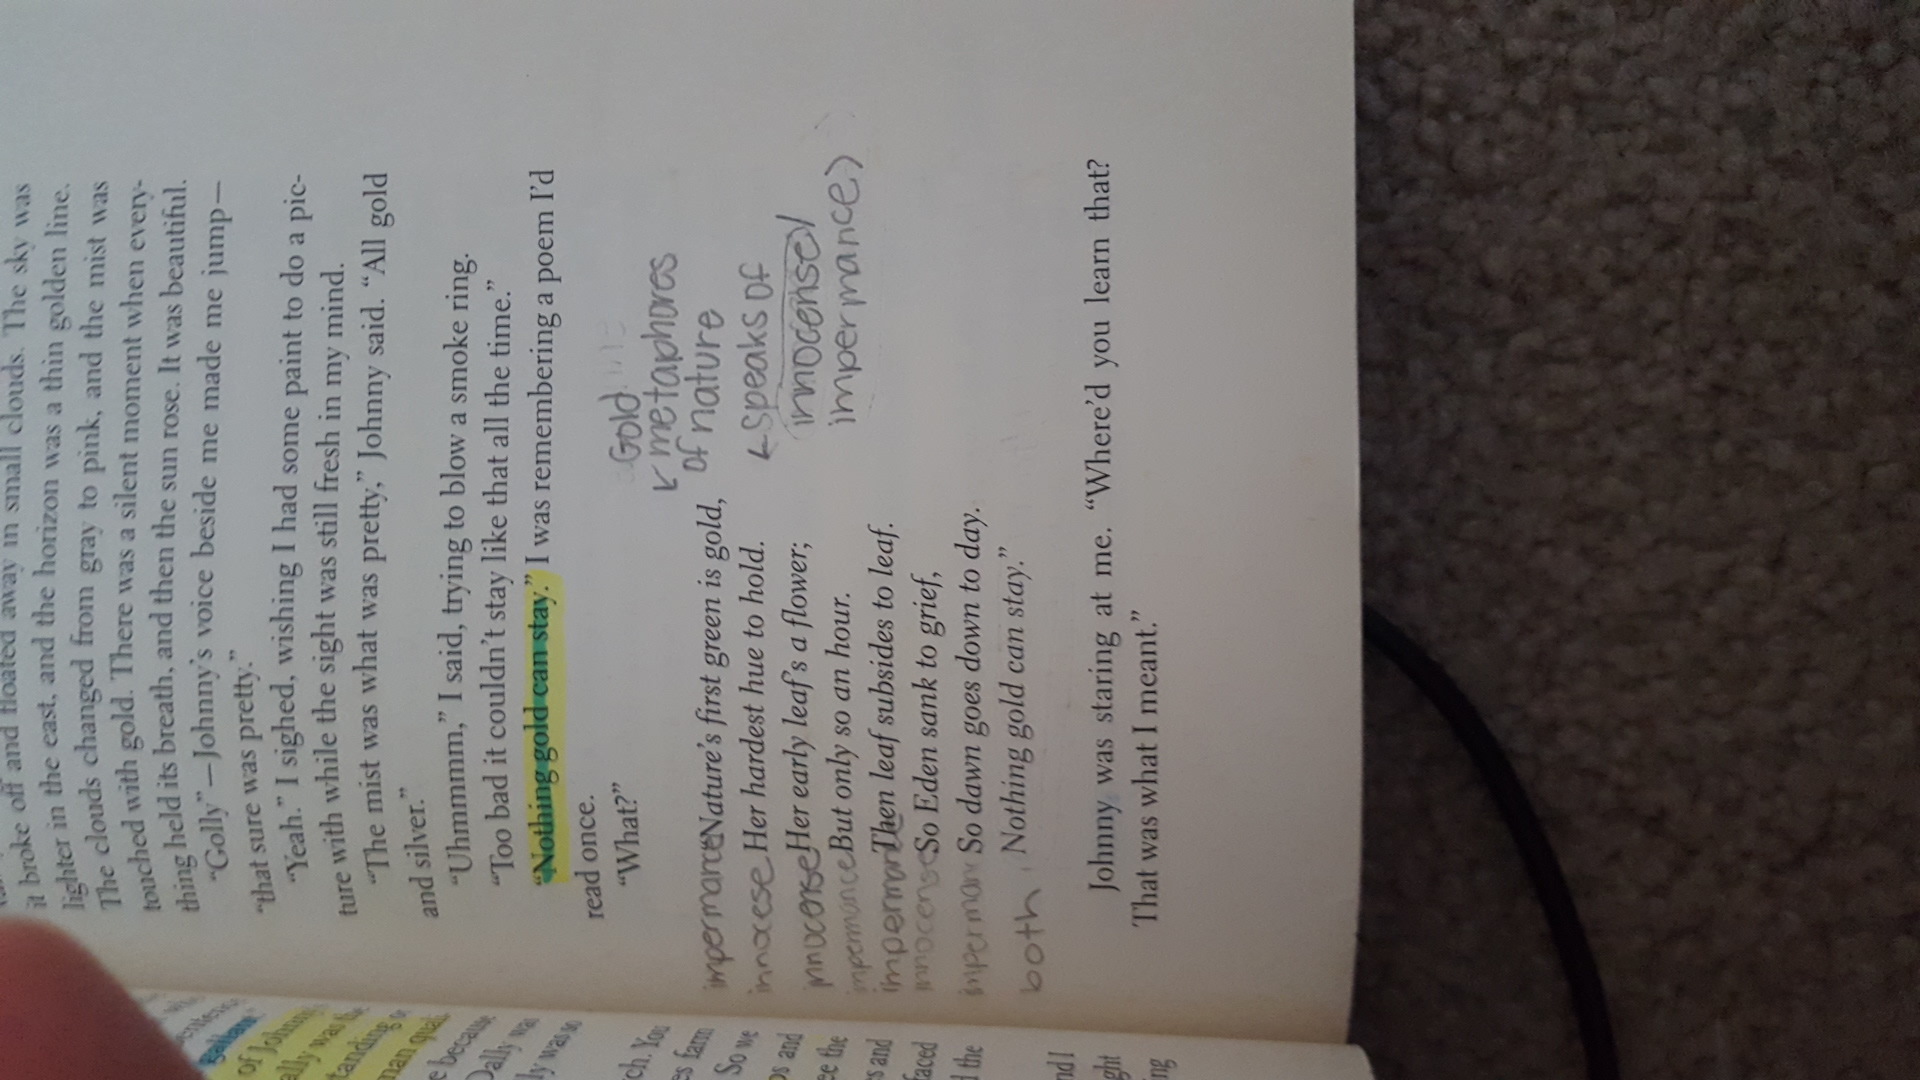 it broke off and floated away in small clouds. The sky was
lighter in the east, and the horizon was a thin golden line.
The clouds changed from gray to pink, and the mist was
touched with gold. There was a silent moment when every-
thing held its breath, and then the sun rose. It was beautiful.
“Golly”—Johnny’s voice beside me made me jump—
“that sure was pretty.”
“Yeah.” I sighed, wishing I had some paint to do a pic-
ture with while the sight was still fresh in my mind.
“The mist was what was pretty,” Johnny said. “All gold
and silver.”
“Uhmmmm,” I said, trying to blow a smoke ring.
“Too bad it couldn’t stay like that all the time.”
“Nothing gold can stay.” I was remembering a poem I’d
read once.
“What?”
Gold
← metaphores
of nature
← speaks of
innocense/
impermance)
impermance Nature’s first green is gold,
innocese Her hardest hue to hold.
innocense Her early leaf’s a flower;
impermance But only so an hour.
impermance Then leaf subsides to leaf.
innocense So Eden sank to grief,
imperman So dawn goes down to day.
both Nothing gold can stay.”
Johnny was staring at me. “Where’d you learn that?
That was what I meant.”
of Johnny
ally was the
tanding
man qual
e because
Dally was
ly was so
ch. You
es farm
So we
s and
ee the
s and
faced
d the
nd I
ght
ng